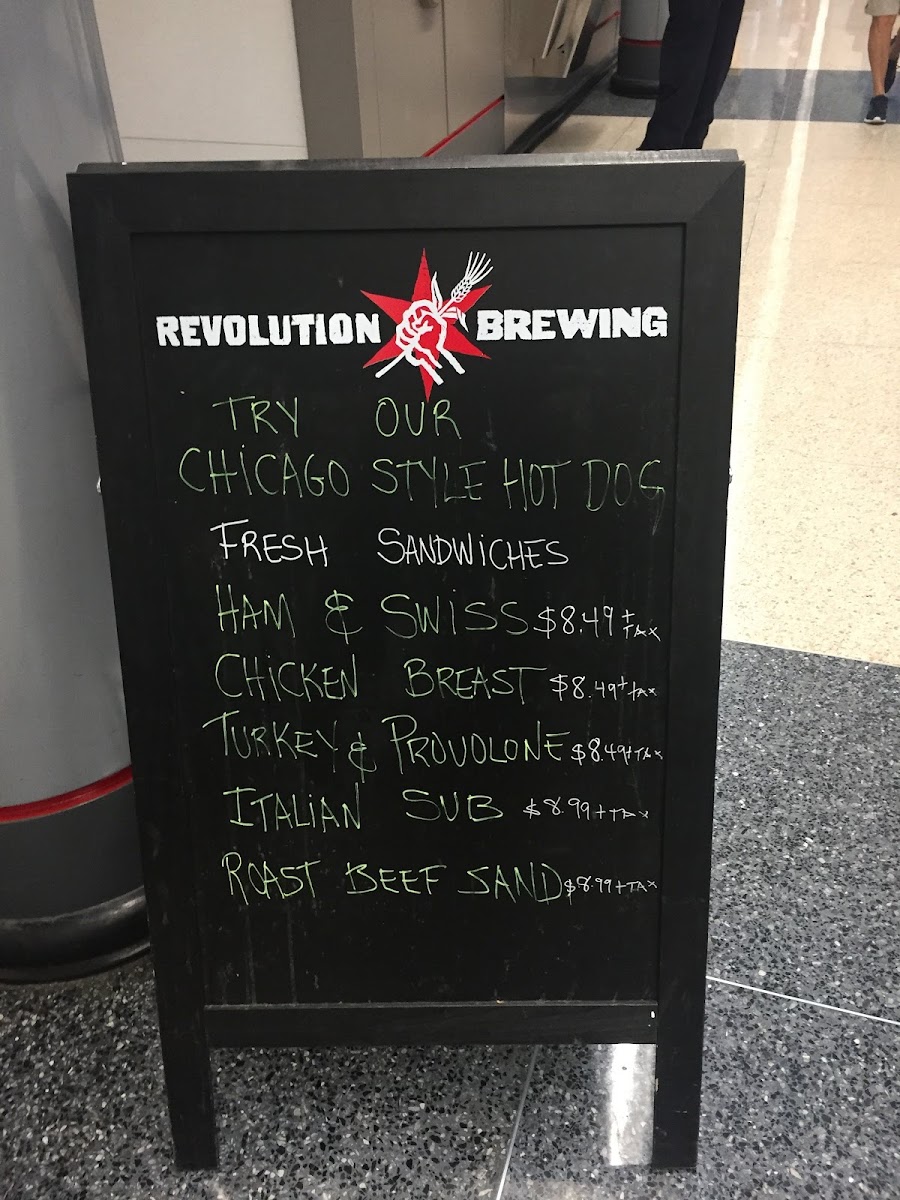 REVOLUTION BREWING
TRY OUR
CHICAGO STYLE HOT DOG
FRESH SANDWICHES
HAM & SWISS $8.49 + TAX
CHICKEN BREAST $8.49 + tax
TURKEY & PROVOLONE $8.49 + TAX
ITALIAN SUB $8.99 + TAX
ROAST BEEF SAND $8.99 + TAX